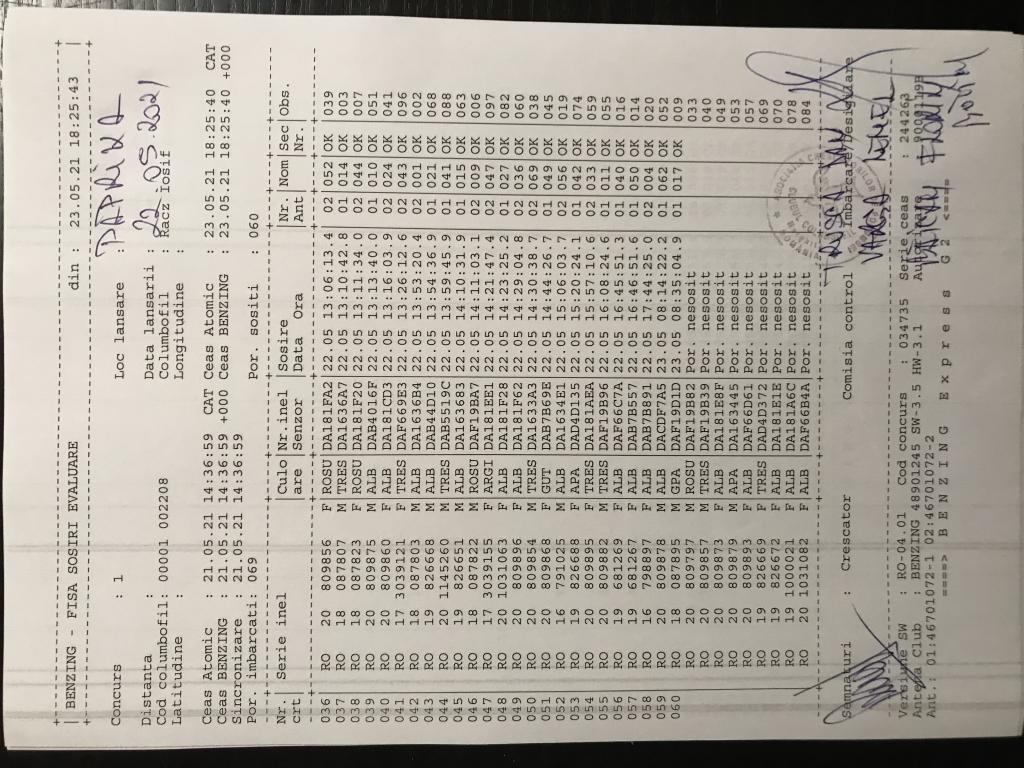 BENZING - FISA SOSIRI EVALUARE din : 23.05.21 18:25:43
Concurs : 1 Loc lansare :
Distanta : Data lansarii : 22.05.2021
Cod columbofil: 00001 002208 Columbofil : Racz Iosif
Latitudine : Longitudine :
Ceas Atomic : 21.05.21 14:36:59 CAT Ceas Atomic : 23.05.21 18:25:40 CAT
Ceas BENZING : 21.05.21 14:36:59 +000 Ceas BENZING : 23.05.21 18:25:40 +000
Sincronizare : 21.05.21 14:36:59
Por. imbarcati: 069 Por. sositi : 060
Nr.| Serie inel |Culo|Nr.inel |Sosire |Nr.|Nom |Sec|Obs.
crt| |are |Senzor |Data Ora |Ant| |Nr.|
036 RO 20 809856 F ROSU DA181FA2 22.05 13:06:13.4 02 052 OK 039
037 RO 18 087807 M TRES DA1636A7 22.05 13:10:42.8 01 014 OK 003
038 RO 18 087823 F ROSU DA181F20 22.05 13:11:34.0 02 044 OK 007
039 RO 20 809875 M ALB DAB4016F 22.05 13:13:40.0 01 010 OK 051
040 RO 20 809860 F ALB DA181CD3 22.05 13:16:03.9 02 024 OK 041
041 RO 17 3039121 F TRES DAF669E3 22.05 13:26:12.6 02 043 OK 096
042 RO 18 087803 M ALB DA1636B4 22.05 13:53:20.4 02 001 OK 002
043 RO 19 826668 M ALB DAB44D10 22.05 13:54:36.9 01 021 OK 068
044 RO 20 1145260 M TRES DAB5519C 22.05 13:59:45.9 01 041 OK 088
045 RO 19 826651 M ALB DA163683 22.05 14:10:31.9 01 015 OK 063
046 RO 18 087822 M ROSU DAF19BA7 22.05 14:11:03.1 02 009 OK 006
047 RO 17 3039155 F ARGI DA181EE1 22.05 14:21:47.4 02 047 OK 097
048 RO 20 1031063 F ALB DA181F28 22.05 14:23:25.2 01 027 OK 082
049 RO 20 809896 F ALB DA181F62 22.05 14:29:04.8 02 036 OK 060
050 RO 20 809854 M TRES DA1633A3 22.05 14:30:38.7 02 069 OK 038
051 RO 20 809868 F GUT DAB7B69E 22.05 14:44:26.7 01 049 OK 045
052 RO 16 791025 M ALB DA1634E1 22.05 15:06:03.7 01 056 OK 019
053 RO 19 826688 F APA DAD4D135 22.05 15:20:24.1 01 042 OK 074
054 RO 20 809895 F TRES DA181AEA 22.05 15:57:10.6 02 033 OK 059
055 RO 20 809882 M TRES DAF19B96 22.05 16:08:24.6 01 011 OK 055
056 RO 19 681269 F ALB DAF66C7A 22.05 16:45:51.3 01 040 OK 016
057 RO 19 681267 F ALB DAB7B557 22.05 16:46:51.9 01 050 OK 014
058 RO 16 798897 F ALB DAB7B891 22.05 17:44:25.0 02 004 OK 020
059 RO 20 809877 M ALB DACDF7A5 23.05 08:14:22.2 01 062 OK 052
060 RO 18 087895 M GPA DAF19D1D 23.05 08:35:04.9 01 017 OK 009
RO 20 809797 M ROSU DAF19B82 Por. nesosit 033
RO 20 809857 M TRES DAF19B39 Por. nesosit 040
RO 20 809873 F ALB DA181E8F Por. nesosit 049
RO 20 809879 M APA DA163445 Por. nesosit 053
RO 20 809893 F ALB DAF66D61 Por. nesosit 057
RO 19 826669 F TRES DAD4D372 Por. nesosit 069
RO 19 826672 F ALB DA181E1E Por. nesosit 070
RO 19 1000021 F ALB DA181A6C Por. nesosit 078
RO 20 1031082 F ALB DAF66B4A Por. nesosit 084
Semnaturi : Crescator Comisia control Imbarcare Desigilare
Versiune SW : RO-04.01 Cod concurs : 034735 Serie ceas : 244263
Antena Club : BENZING 48901245 SW-3.5 HW-3.1
Ant.: 01:46701072-1 02:46701072-2
====> B E N Z I N G E x p r e s s G 2 <====